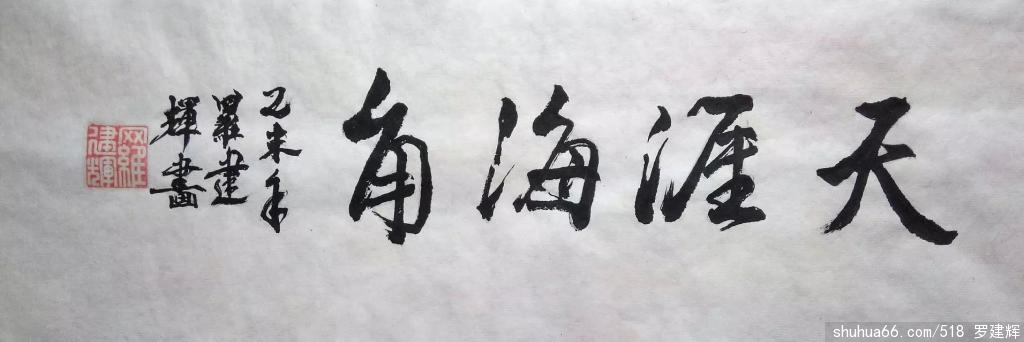 天涯海角
乙未年
羅建
輝書
羅建輝
shuhua66.com/518 罗建辉